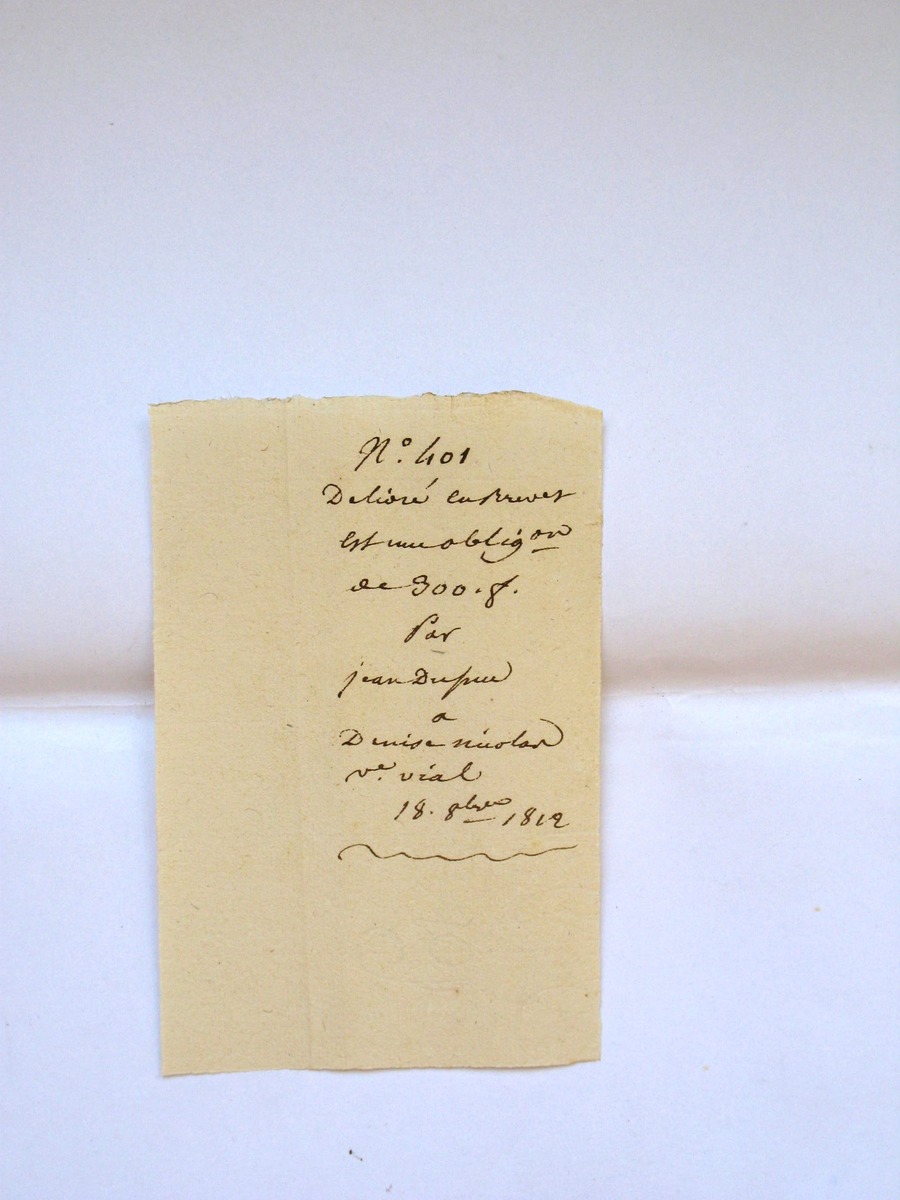 N.º 401
Delivré en Brevet
est une oblig.on
de 300.f.
Par
jean Dupuu
a
Denise nicolas
v.e vial
18. 8bre 1812